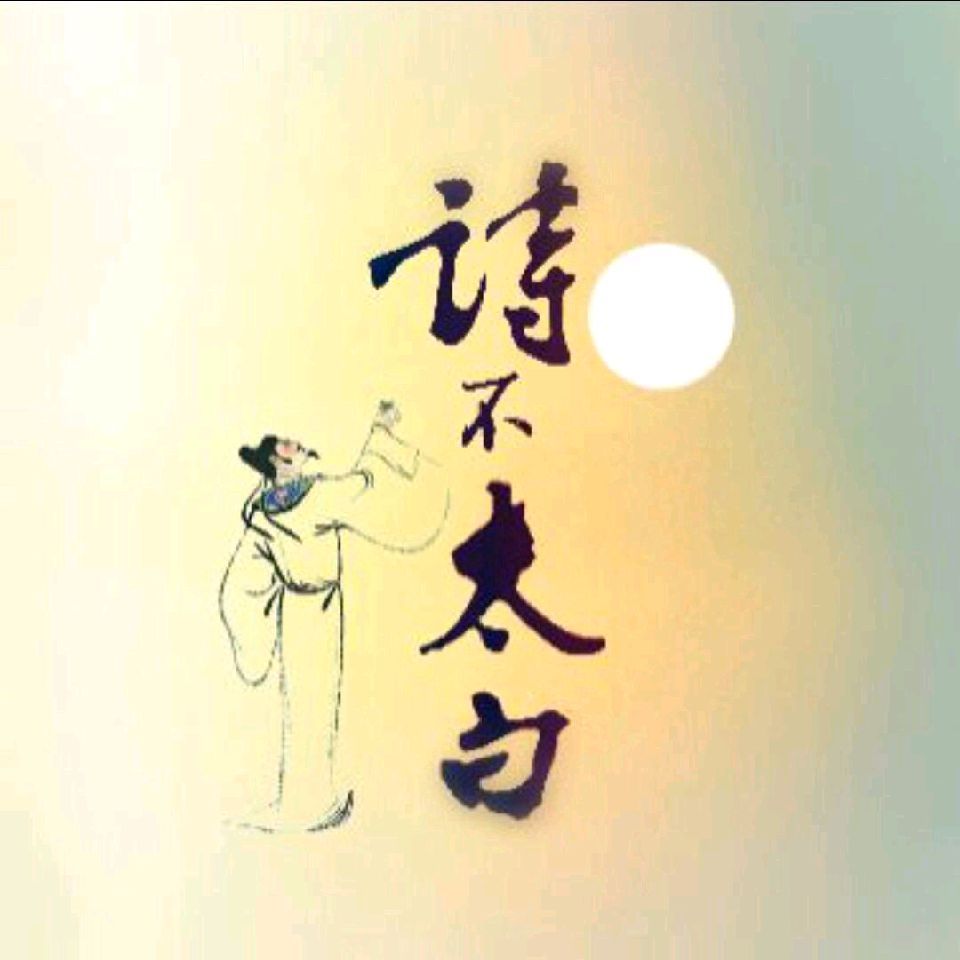 诗不太白